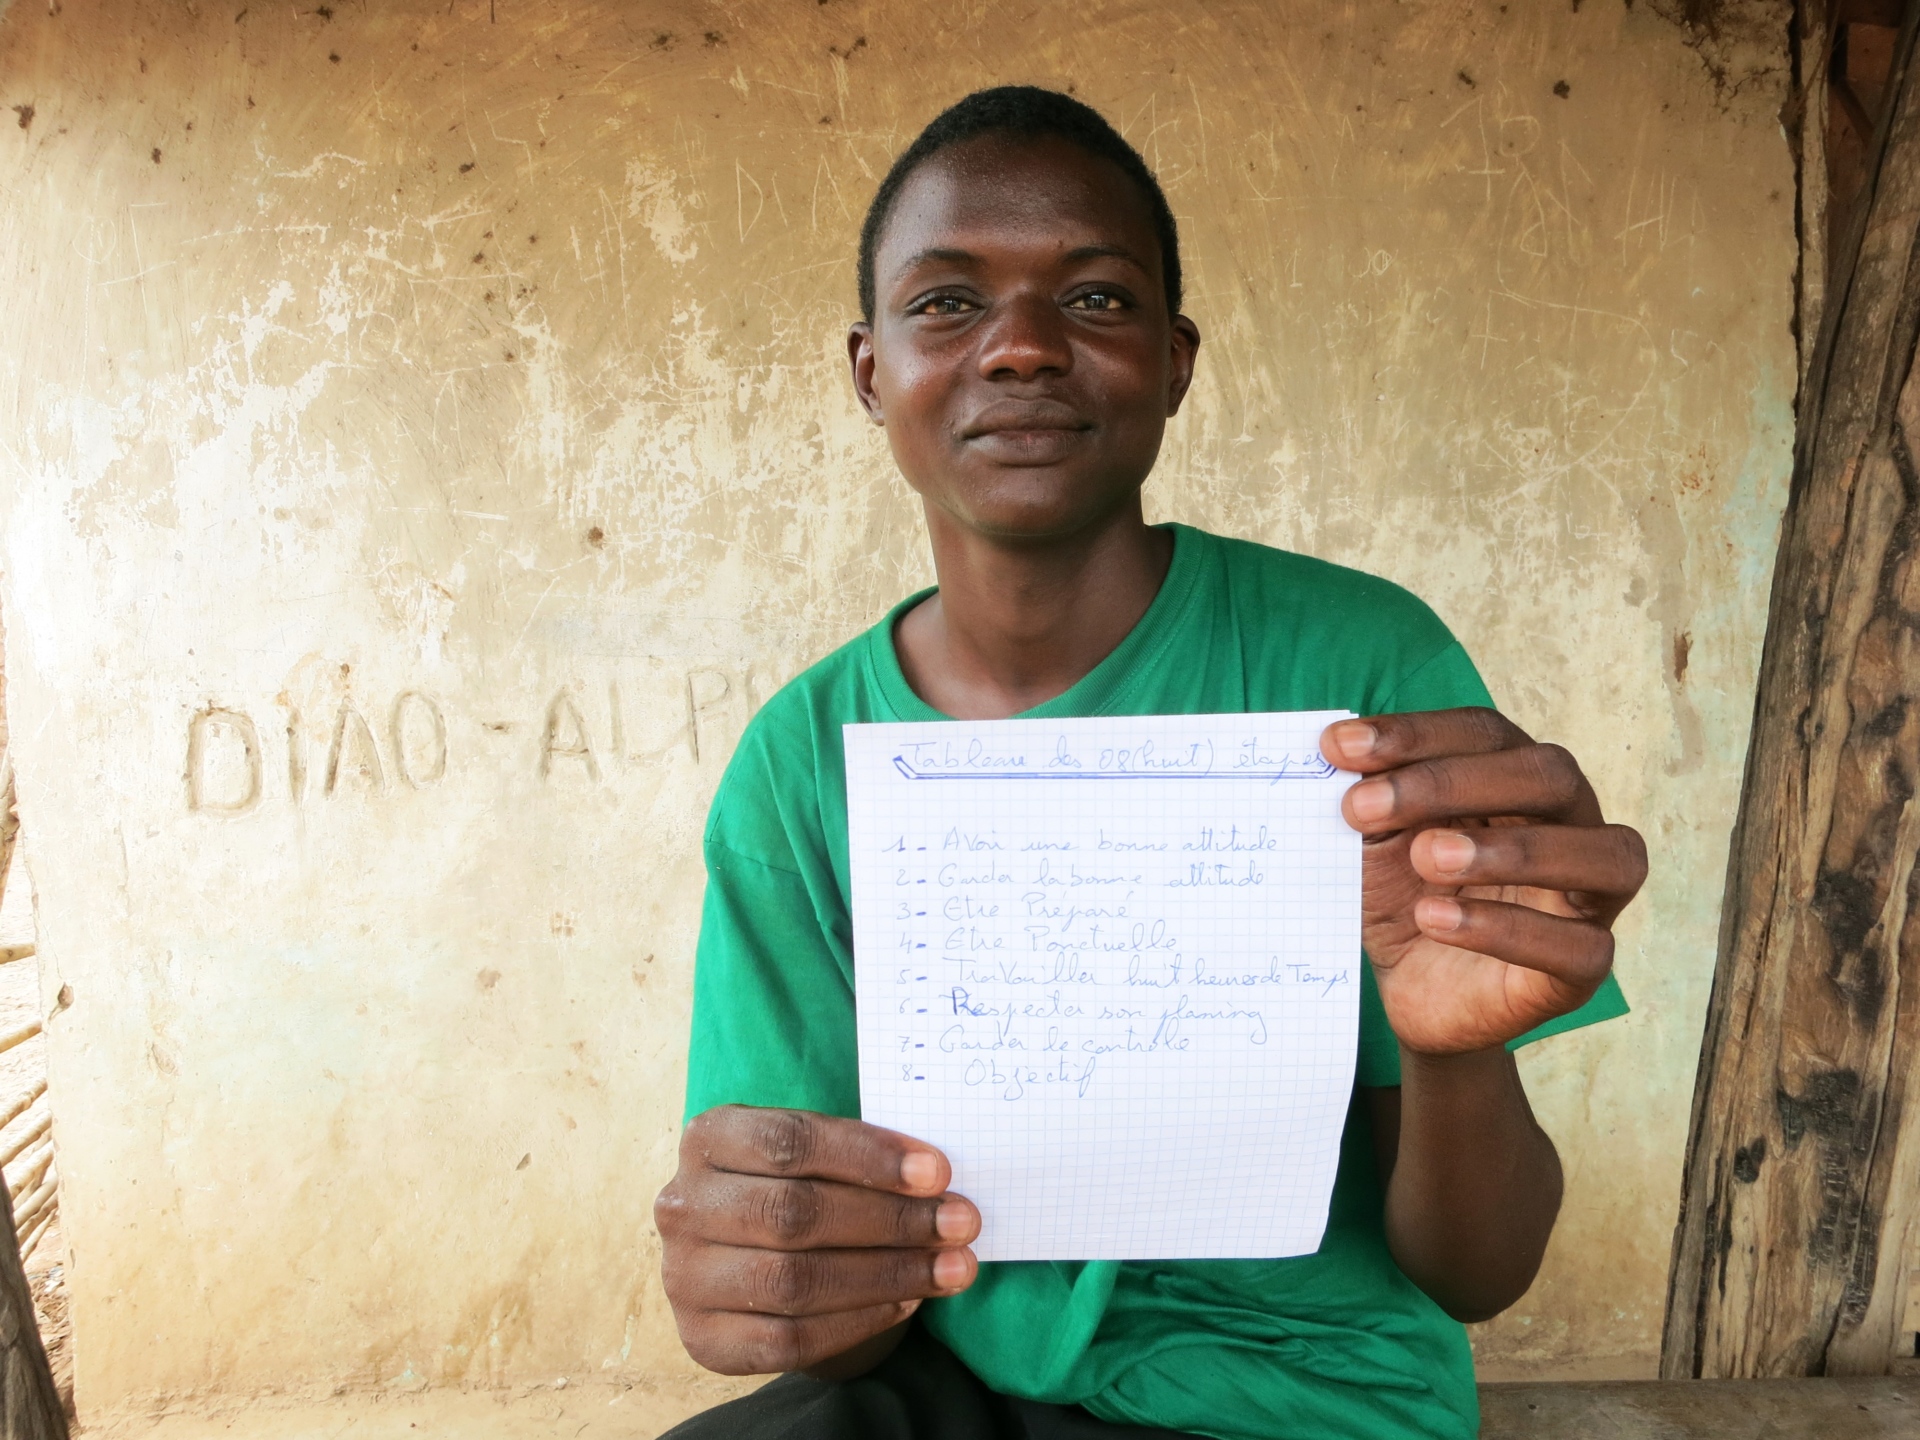 DIAO - ALP
Tableau des 08(huit) étapes
1- Avoir une bonne attitude
2- Garder la bonne attitude
3- Etre Preparé
4- Etre Ponctuelle
5- Travailler huit heures de Temps
6- Respecter son planing
7- Garder le controle
8- Objectif